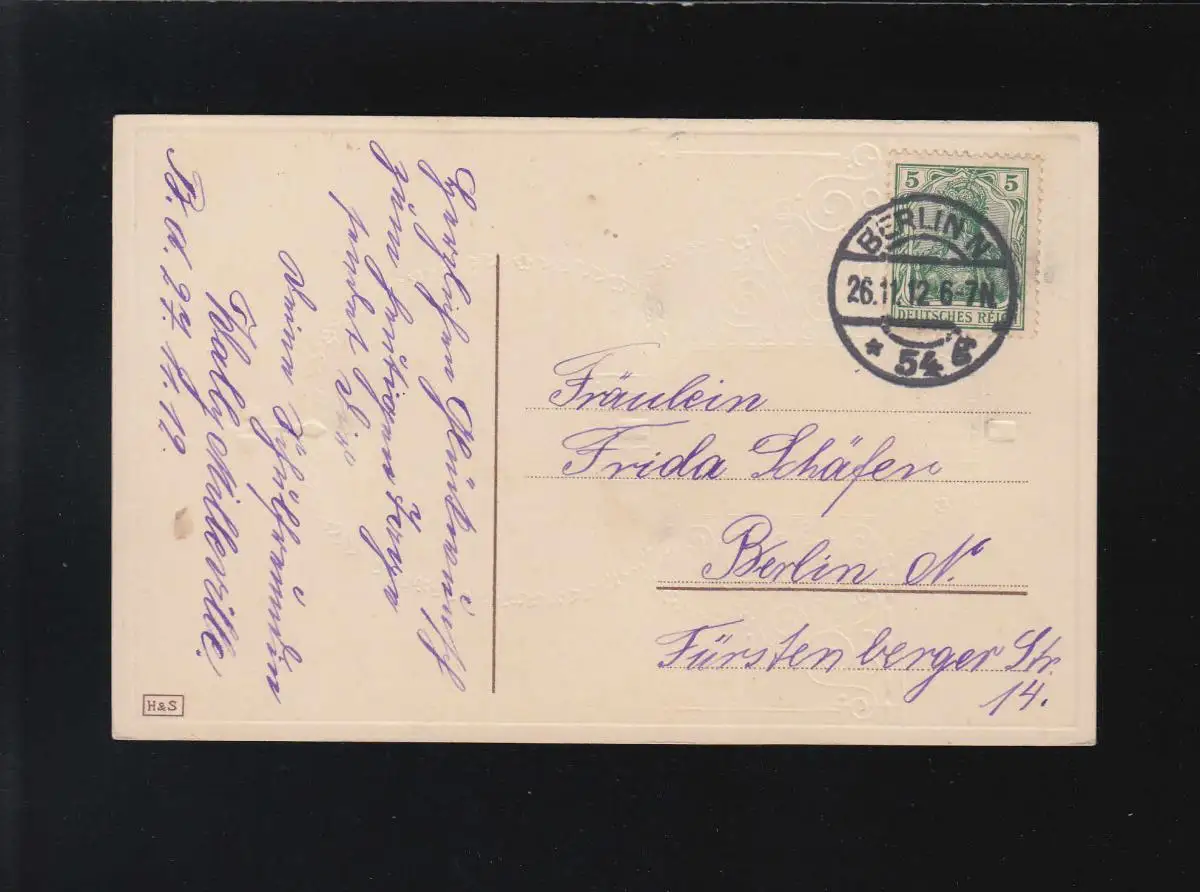 Herzlichen Glückwunsch
zum heutigen
sendet Dir
Deine Schulfreundin
Wally Milleville.
B. d. 27. 11. 12.
H&S
5 5
DEUTSCHES REICH
BERLIN N.
26.11.12 6-7N.
* 54 g
Fräulein
Frida Schäfer
Berlin N.
Fürstenberger Str.
14.